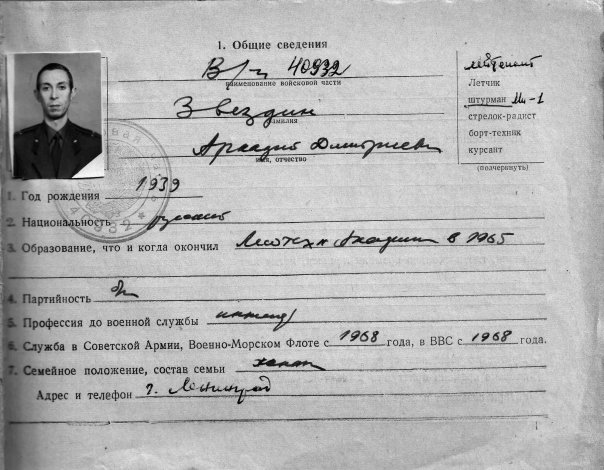 1. Общие сведения
В/ч 40932
наименование войсковой части
Звездин
фамилия
Аркадий Дмитриевич
имя, отчество
лейтенант
Летчик
штурман Ми-1
стрелок-радист
борт-техник
курсант
(подчеркнуть)
1. Год рождения 1939
2. Национальность русский
3. Образование, что и когда окончил Лесотехн Академия в 1965
4. Партийность
5. Профессия до военной службы инженер
6. Служба в Советской Армии, Военно-Морском Флоте с 1968 года, в ВВС с 1968 года.
7. Семейное положение, состав семьи холост
Адрес и телефон г. Ленинград
40932